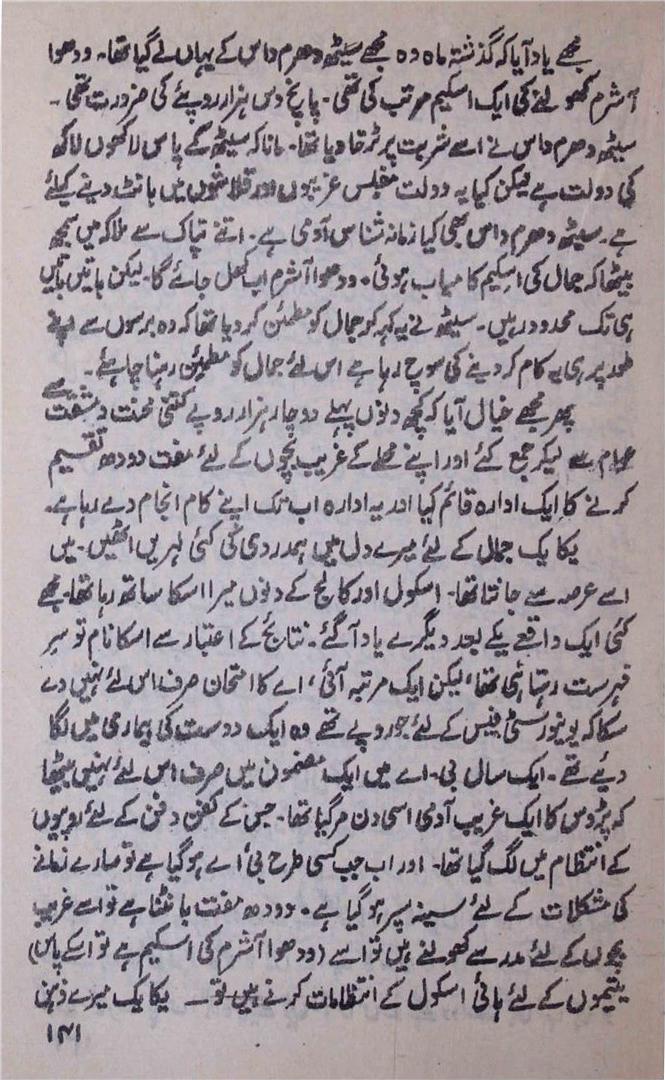 مجھے یاد آیا کہ گذشتہ ماہ وہ مجھے سیٹھ دھرم داس کے یہاں لے گیا تھا۔ ودھوا
آشرم کھولنے کی ایک اسکیم مرتب کی تھی۔ پانچ دس ہزار روپئے کی ضرورت تھی۔
سیٹھ دھرم داس نے اسے شربت پر ٹرخا دیا تھا۔ مانا کہ سیٹھ کے پاس لاکھوں لاکھ
کی دولت ہے لیکن کیا یہ دولت مفلس غریبوں اور قلاشوں میں بانٹ دینے کیلئے
ہے۔ سیٹھ دھرم داس بھی کیا زمانہ شناس آدمی ہے۔ اتنے تپاک سے ملا کہ میں سمجھ
بیٹھا کہ جمال کی اسکیم کامیاب ہوئی۔ ودھوا آشرم اب کھل جائے گا۔ لیکن باتیں باتیں
ہی تک محدود رہیں۔ سیٹھ نے یہ کہہ کر جمال کو مطمئن کر دیا تھا کہ وہ برسوں سے اپنے
طور پر ہی یہ کام کر دینے کی سوچ رہا ہے اس لئے جمال کو مطمئن رہنا چاہئے۔
پھر مجھے خیال آیا کہ کچھ دنوں پہلے دو چار ہزار روپے کتنی محنت و مشقت سے
عوام سے لیکر جمع کئے اور اپنے محلے کے غریب بچوں کے لئے مفت دودھ تقسیم
کرنے کا ایک ادارہ قائم کیا اور یہ ادارہ اب تک اپنے کام انجام دے رہا ہے۔
یکایک جمال کے لئے میرے دل میں ہمدردی کی کئی لہریں اٹھیں۔ میں
اسے عرصہ سے جانتا تھا۔ اسکول اور کالج کے دنوں میرا اسکا ساتھ رہا تھا۔ مجھے
کئی ایک واقعے یکے بعد دیگرے یاد آگئے۔ نتائج کے اعتبار سے اسکا نام تو سر
فہرست رہتا ہی تھا، لیکن ایک مرتبہ آئی، اے کا امتحان صرف اس لئے نہیں دے
سکا کہ یونیورسٹی فیس کے لئے جو روپے تھے وہ ایک دوست کی بیماری میں لگا
دیئے تھے۔ ایک سال بی۔ اے میں ایک مضمون میں صرف اس لئے نہیں بیٹھا
کہ پڑوس کا ایک غریب آدمی اسی دن مر گیا تھا۔ جس کے کفن دفن کے لئے روپیوں
کے انتظام میں لگ گیا تھا۔ اور اب جب کسی طرح بی اے ہو گیا ہے تو سارے زمانے
کی مشکلات کے لئے سینہ سپر ہو گیا ہے۔ دودھ مفت بانٹنا ہے تو اسے غریب
بچوں کے لئے مدرسے کھولنے ہیں تو اسے (ودھوا آشرم کی اسکیم ہے تو اسکے پاس)
یتیموں کے لئے ہائی اسکول کے انتظامات کرنے ہیں تو۔ یکایک میرے ذہن
۱۴۱